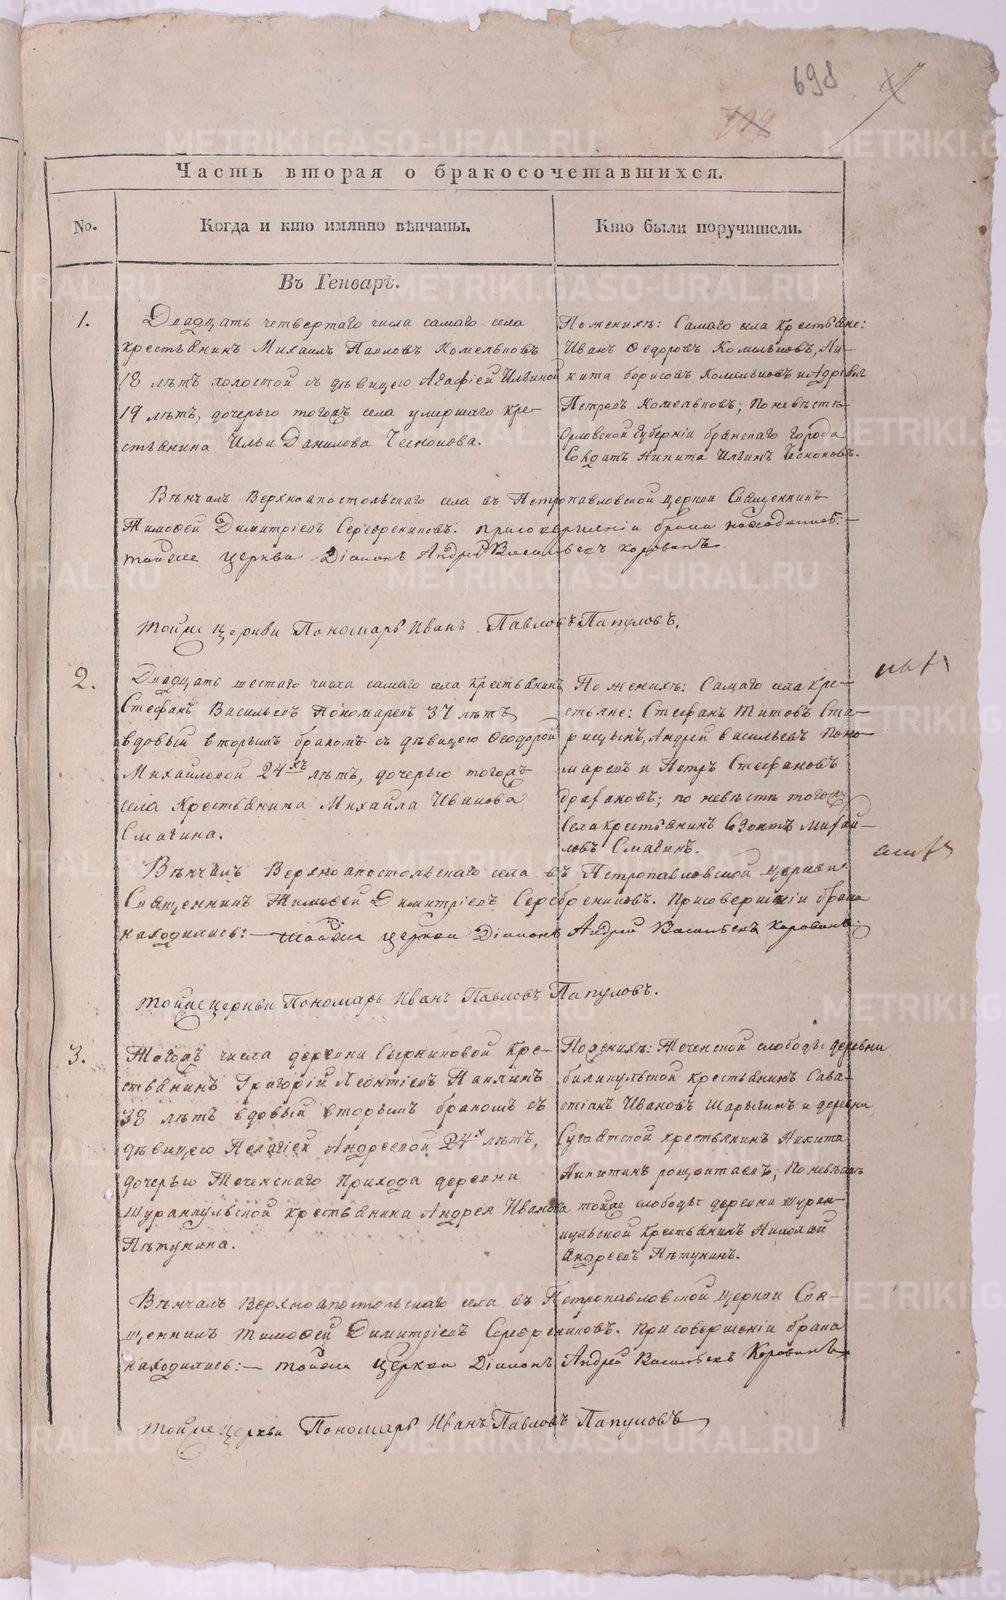 698
Часть вторая о бракосочетавшихся.
No.
Когда и кто имянно вѣнчаны.
Кто были поручители.
Въ Генварѣ.
1.
Двадцать четвертаго числа самаго села
крестьянинъ Михаилъ Павловъ Комельковъ
18 лѣтъ холостой съ дѣвицею Агафіей Ильиной
19 лѣтъ, дочерью тогожъ села умершаго кре-
стьянина Ильи Данилова Чеснокова.
По женихѣ: Самаго села крестьяне:
Иванъ Федоровъ Комельковъ, Ни-
кита борисовъ Комельковъ и Андрей
Петровъ Комельковъ; По невѣстѣ
Орловской Губерніи брянскаго города
Солдатъ Никита Ильинъ Чесноковъ.
Вѣнчалъ Верхноапостольскаго села въ Петропавловской церкви Священникъ
Тимофей Димитріевъ Серебрениковъ. При совершеніи брака находились:
тойже церкви Діаконъ Андрей Васильевъ Коровинъ
тойже церкви Пономарь Иванъ Павловъ Папуловъ.
2.
Двадцать шестаго числа самаго села крестьянинъ
Стефанъ Васильевъ Пономаревъ 37 лѣтъ
вдовый вторымъ бракомъ съ дѣвицею Феодорой
Михайловой 24хъ лѣтъ, дочерью тогожъ
села Крестьянина Михайла Иванова
Смагина.
По женихѣ: Самаго села Кре-
стьяне: Стефанъ Титовъ Ста-
рицынъ, Андрей васильевъ Поно-
маревъ и Петръ Стефановъ
по невѣстѣ тогожъ
села крестьянинъ Созонтъ Михай-
ловъ Смагинъ.
Вѣнчалъ Верхноапостольскаго села въ Петропавловской церкви
Священникъ Тимофей Димитріевъ Серебрениковъ. При совершеніи брака
находились: — тойже церкви Діаконъ Андрей Васильевъ Коровинъ
тойже церкви Пономарь Иванъ Павловъ Папуловъ.
3.
Тогожъ числа деревни Сырниковой Кре-
стьянинъ Григорій Леонтіевъ Паклинъ
38 лѣтъ вдовый вторымъ бракомъ съ
дѣвицею Пелагіей Андреевой 24х лѣтъ,
дочерью Теченскаго прихода деревни
Шуранкульской крестьянина Андрея Иванова
Пѣтухина.
По женихѣ: Теченской слободы деревни
билинкульской крестьянинъ Сава-
стіянъ Ивановъ Шарыгинъ и деревни
Сугоятской крестьянинъ Никита
Никитинъ По невѣстѣ
тойже слободы деревни Шуран-
кульской крестьянинъ Николай
Андреевъ Пѣтухинъ.
Вѣнчалъ Верхноапостольскаго села въ Петропавловской церкви Свя-
щенникъ Тимофей Димитріевъ Серебрениковъ. При совершеніи брака
находились: — тойже церкви Діаконъ Андрей Васильевъ Коровинъ
тойже церкви Пономарь Иванъ Павловъ Папуловъ
METRIKI.GASO-URAL.RU